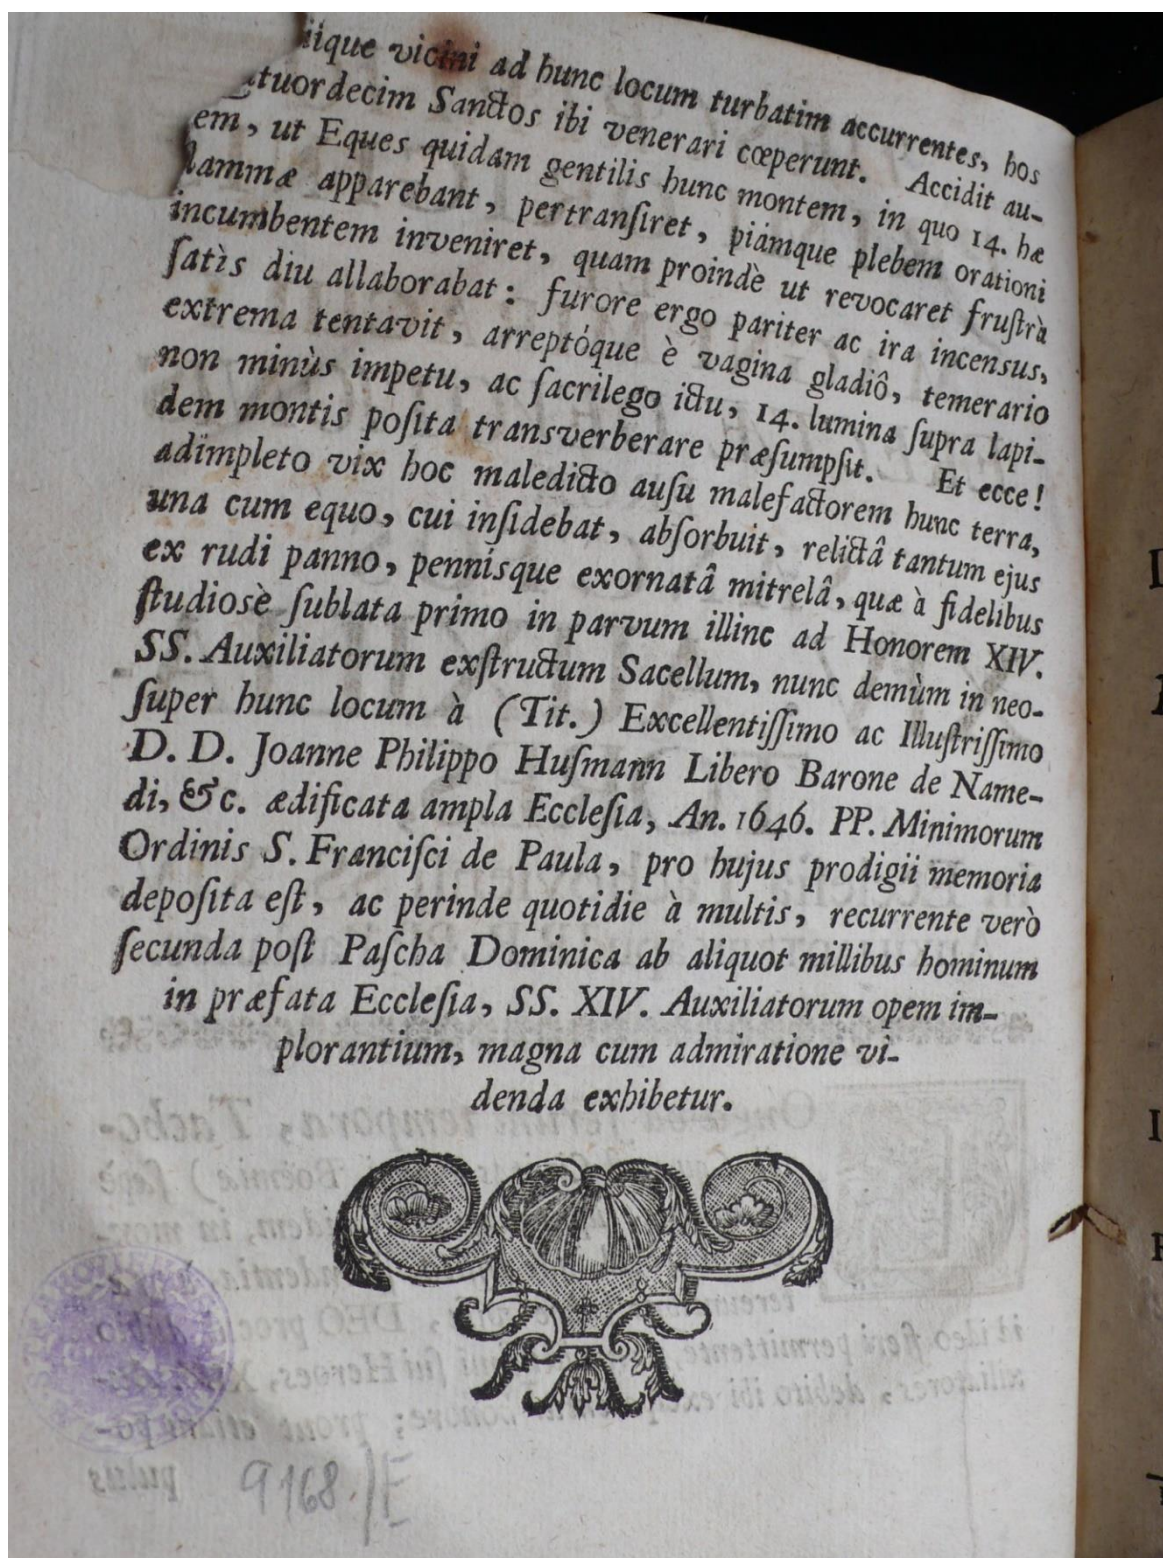 iique vicini ad hunc locum turbatim accurrentes, hos
tuordecim Sanctos ibi venerari cœperunt. Accidit au-
em, ut Eques quidam gentilis hunc montem, in quo 14. hæ
lammæ apparebant, pertranſiret, piámque plebem orationi
incumbentem inveniret, quam proindè ut revocaret fruſtrà
ſatìs diu allaborabat: furore ergo pariter ac ira incensus,
extrema tentavit, arreptóque è vagina gladiô, temerario
non minùs impetu, ac ſacrilego ictu, 14. lumina ſupra lapi-
dem montis poſita transverberare præſumpſit. Et ecce!
adimpleto vix hoc maledicto auſu malefactorem hunc terra,
una cum equo, cui inſidebat, abſorbuit, relictâ tantum ejus
ex rudi panno, pennisque exornatâ mitrelâ, quæ à fidelibus
ſtudiosè ſublata primo in parvum illinc ad Honorem XIV.
SS. Auxiliatorum exſtructum Sacellum, nunc demùm in neo-
ſuper hunc locum à (Tit.) Excellentiſſimo ac Illuſtriſſimo
D. D. Joanne Philippo Huſmann Libero Barone de Name-
di, &c. ædificata ampla Eccleſia, An. 1646. PP. Minimorum
Ordinis S. Franciſci de Paula, pro hujus prodigii memoria
depoſita eſt, ac perinde quotidie à multis, recurrente verò
ſecunda poſt Paſcha Dominica ab aliquot millibus hominum
in præfata Eccleſia, SS. XIV. Auxiliatorum opem im-
plorantium, magna cum admiratione vi-
denda exhibetur.
9168./E